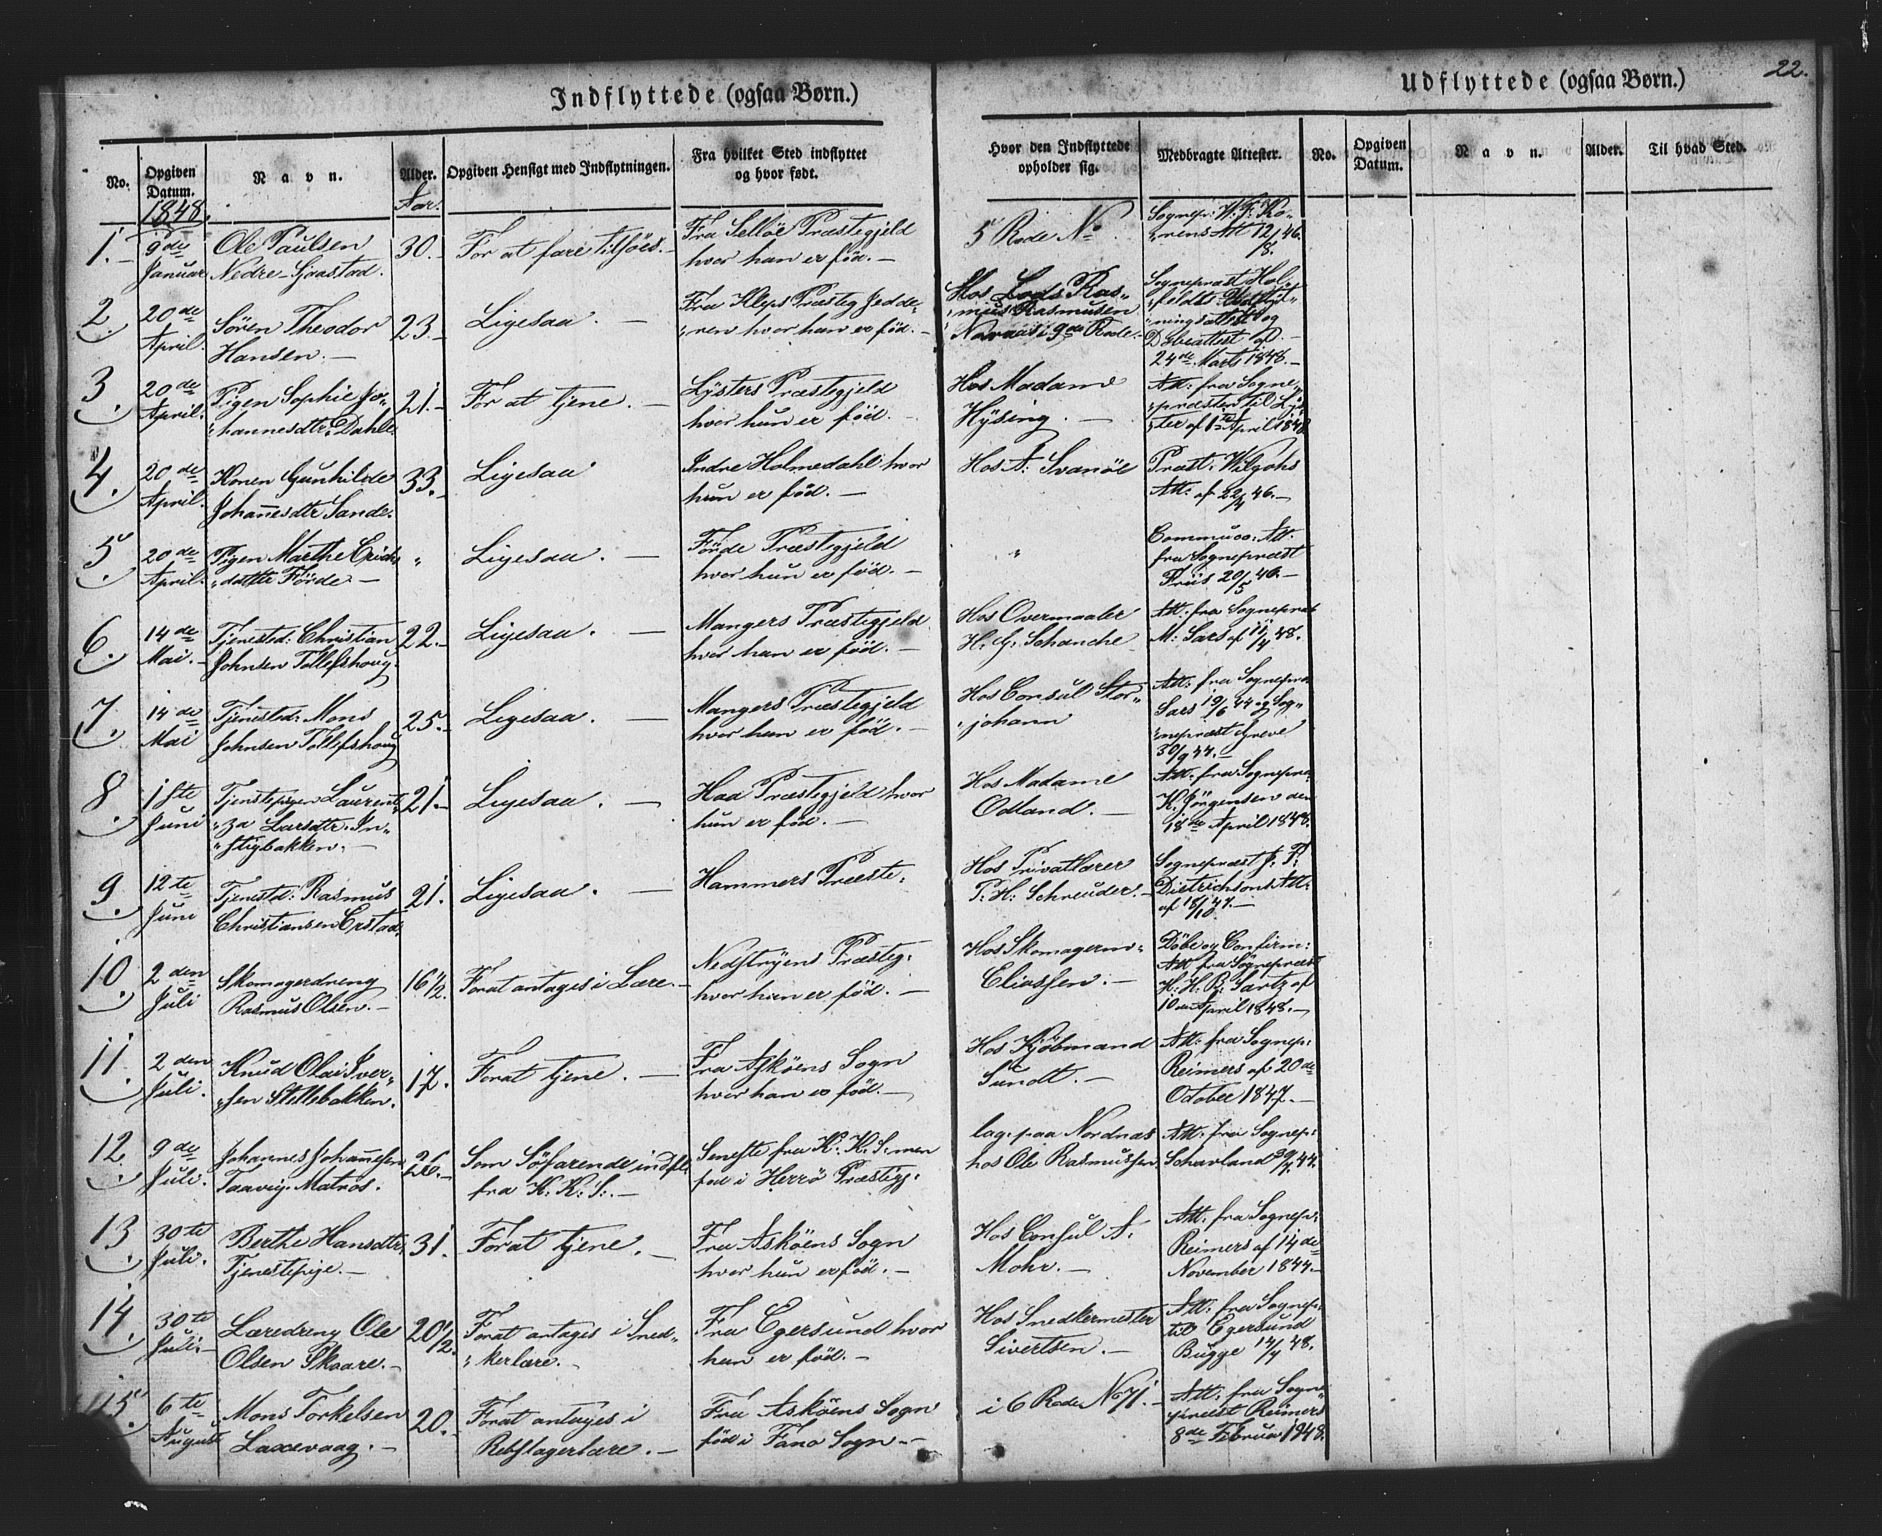 22.
Indflyttede (ogsaa Børn.)
Udflyttede (ogsaa Børn.)
No.
Opgiven Datum.
Navn.
Alder.
Opgiven Hensigt med Indflytningen.
Fra hvilket Sted indflyttet og hvor født.
Hvor den Indflyttede opholder sig.
Medbragte Attester.
No.
Opgiven Datum.
Navn.
Alder.
Til hvad Sted.
1848.
Aar.
1.
9de Januar
Ole Paulsen
Nedre-Gjaastad.
30.
For at fare tilsøes.
Fra Selløe Præstegjeld
hvor han er fød.
5 Rode No
Sognepr: W. F. Ko-
rens Att 12/8 46.
2.
20de April.
Søren Theodor
Hansen.
23.
Ligesaa.
Fra Kleps Præsteg Jedde-
ren hvor han er fød.
Hos Lods Ras-
mus Rasmussen
Nordnæs i 9de Rode.
Sognepræst Hol-
feldts
ningsattest og
Døbeattest af
24de Marts 1848.
3.
20de April.
Pigen Sophie Jo-
hannesdtr Dahle.
21.
For at tjene.
Lysters Præstegjeld
hvor hun er fød.
Hos Madame
Hysing.
Att: fra Sogne-
præsten til Lys-
ter af 1ste April 1848.
4.
20de April.
Konen Gunhilde
Johannesdtr Sande.
33.
Ligesaa
Indre Holmedahl hvor
hun er fød.
Hos A: Svanöe
Præst: Wilgohs
Att: af 22/4 46.
5.
20de April.
Pigen Marthe Erichs-
datter Förde
"
Ligesaa.
Förde Præstegjeld
hvor hun er fød.
"
Communo: Att.
fra Sognepræst
Friis 20/5 46.
6.
14de Mai.
Tjenestd: Christian
Johnsen Tollefshoug.
22.
Ligesaa.
Mangers Præstegjeld
hvor han er fød.
Hos Overmaaler
H. G. Schanche
Att: fra Sognepræst
M: Sars af 11/4 48.
7.
14de Mai
Tjenestd: Mons
Johnsen Tollefshoug
25.
Ligesaa.
Mangers Præstegjeld
hvor han er fød.
Hos Consul Stor-
johann
Att: fra Sognepræ
Sars 19/6 44 og Sog-
nepræst Greve
30/9 44.
8.
18te Juni
Tjenstepigen Laurent-
za Larsdtr. In-
stigbakken.
21.
Ligesaa.
Haa Præstegjeld hvor
hun er fød.
Hos Madame
Odland.
Att: fra Sognepræ
K. Jörgensen den
18de April 1848.
9.
12te Juni
Tjenestd: Rasmus
Christiansen Erstad.
21.
Ligesaa.
Hammers Præste:
Hos Privatlærer
P: H: Schreuder.
Sognepræst J: P:
Dietrichsons Att:
af 18/10 47.
10.
2den Juli
Skomagerdreng
Rasmus Olsen.
16 1/2.
Forat antages i Lære.
Nedstryens Præsteg:
hvor han er fød.
Hos Skomagerm:
Eliassen.
Döbe og Confirm:
Att fra Sognepræst
H: H: B: Sartz af
10de April 1848.
11.
2den Juli.
Knud Olai Iver-
sen Stellebakken.
17.
Forat tjene.
Fra Askøens Sogn
hvor han er fød.
Hos Kjøbmand
Sundt.
Att: fra Sognep:
Reimers af 20de
October 1847.
12.
9de Juli.
Johannes Johannesen
Taavig. Matros.
26.
Som Söfarende indfl:
fra K: K: S:
Seneste fra K: K: S:men
fød i Herrö Præstegj:
log: paa Nordnæs
hos Ole Rasmussen
Att: fra Sognep:
Schavland 44.
13.
30te Juli.
Berthe Hansdtr.
Tjenestepige.
31.
Forat tjene.
Fra Askøens Sogn
hvor hun er fød.
Hos Consul A:
Mohr.
Att: fra Sognep:
Reimers af 14de
November 1844.
14.
30te Juli.
Læredreng Ole
Olsen Skaare.
20 1/2.
Forat antages i Sned-
kerlære.
Fra Egersund hvor
han er fød.
Hos Snedkermester
Sivertsen.
Att: fra Sognep:
til Egersund
Bugge 14/4 48.
15.
6te August
Mons Torkelsen
Laxevaag.
20.
Forat antages i
Rebslagerlære.
Fra Askøens Sogn
fød i Fano Sogn.
i 6 Rode No 71.
Att: fra Sogne-
præst Reimers
8de Februar 1848.